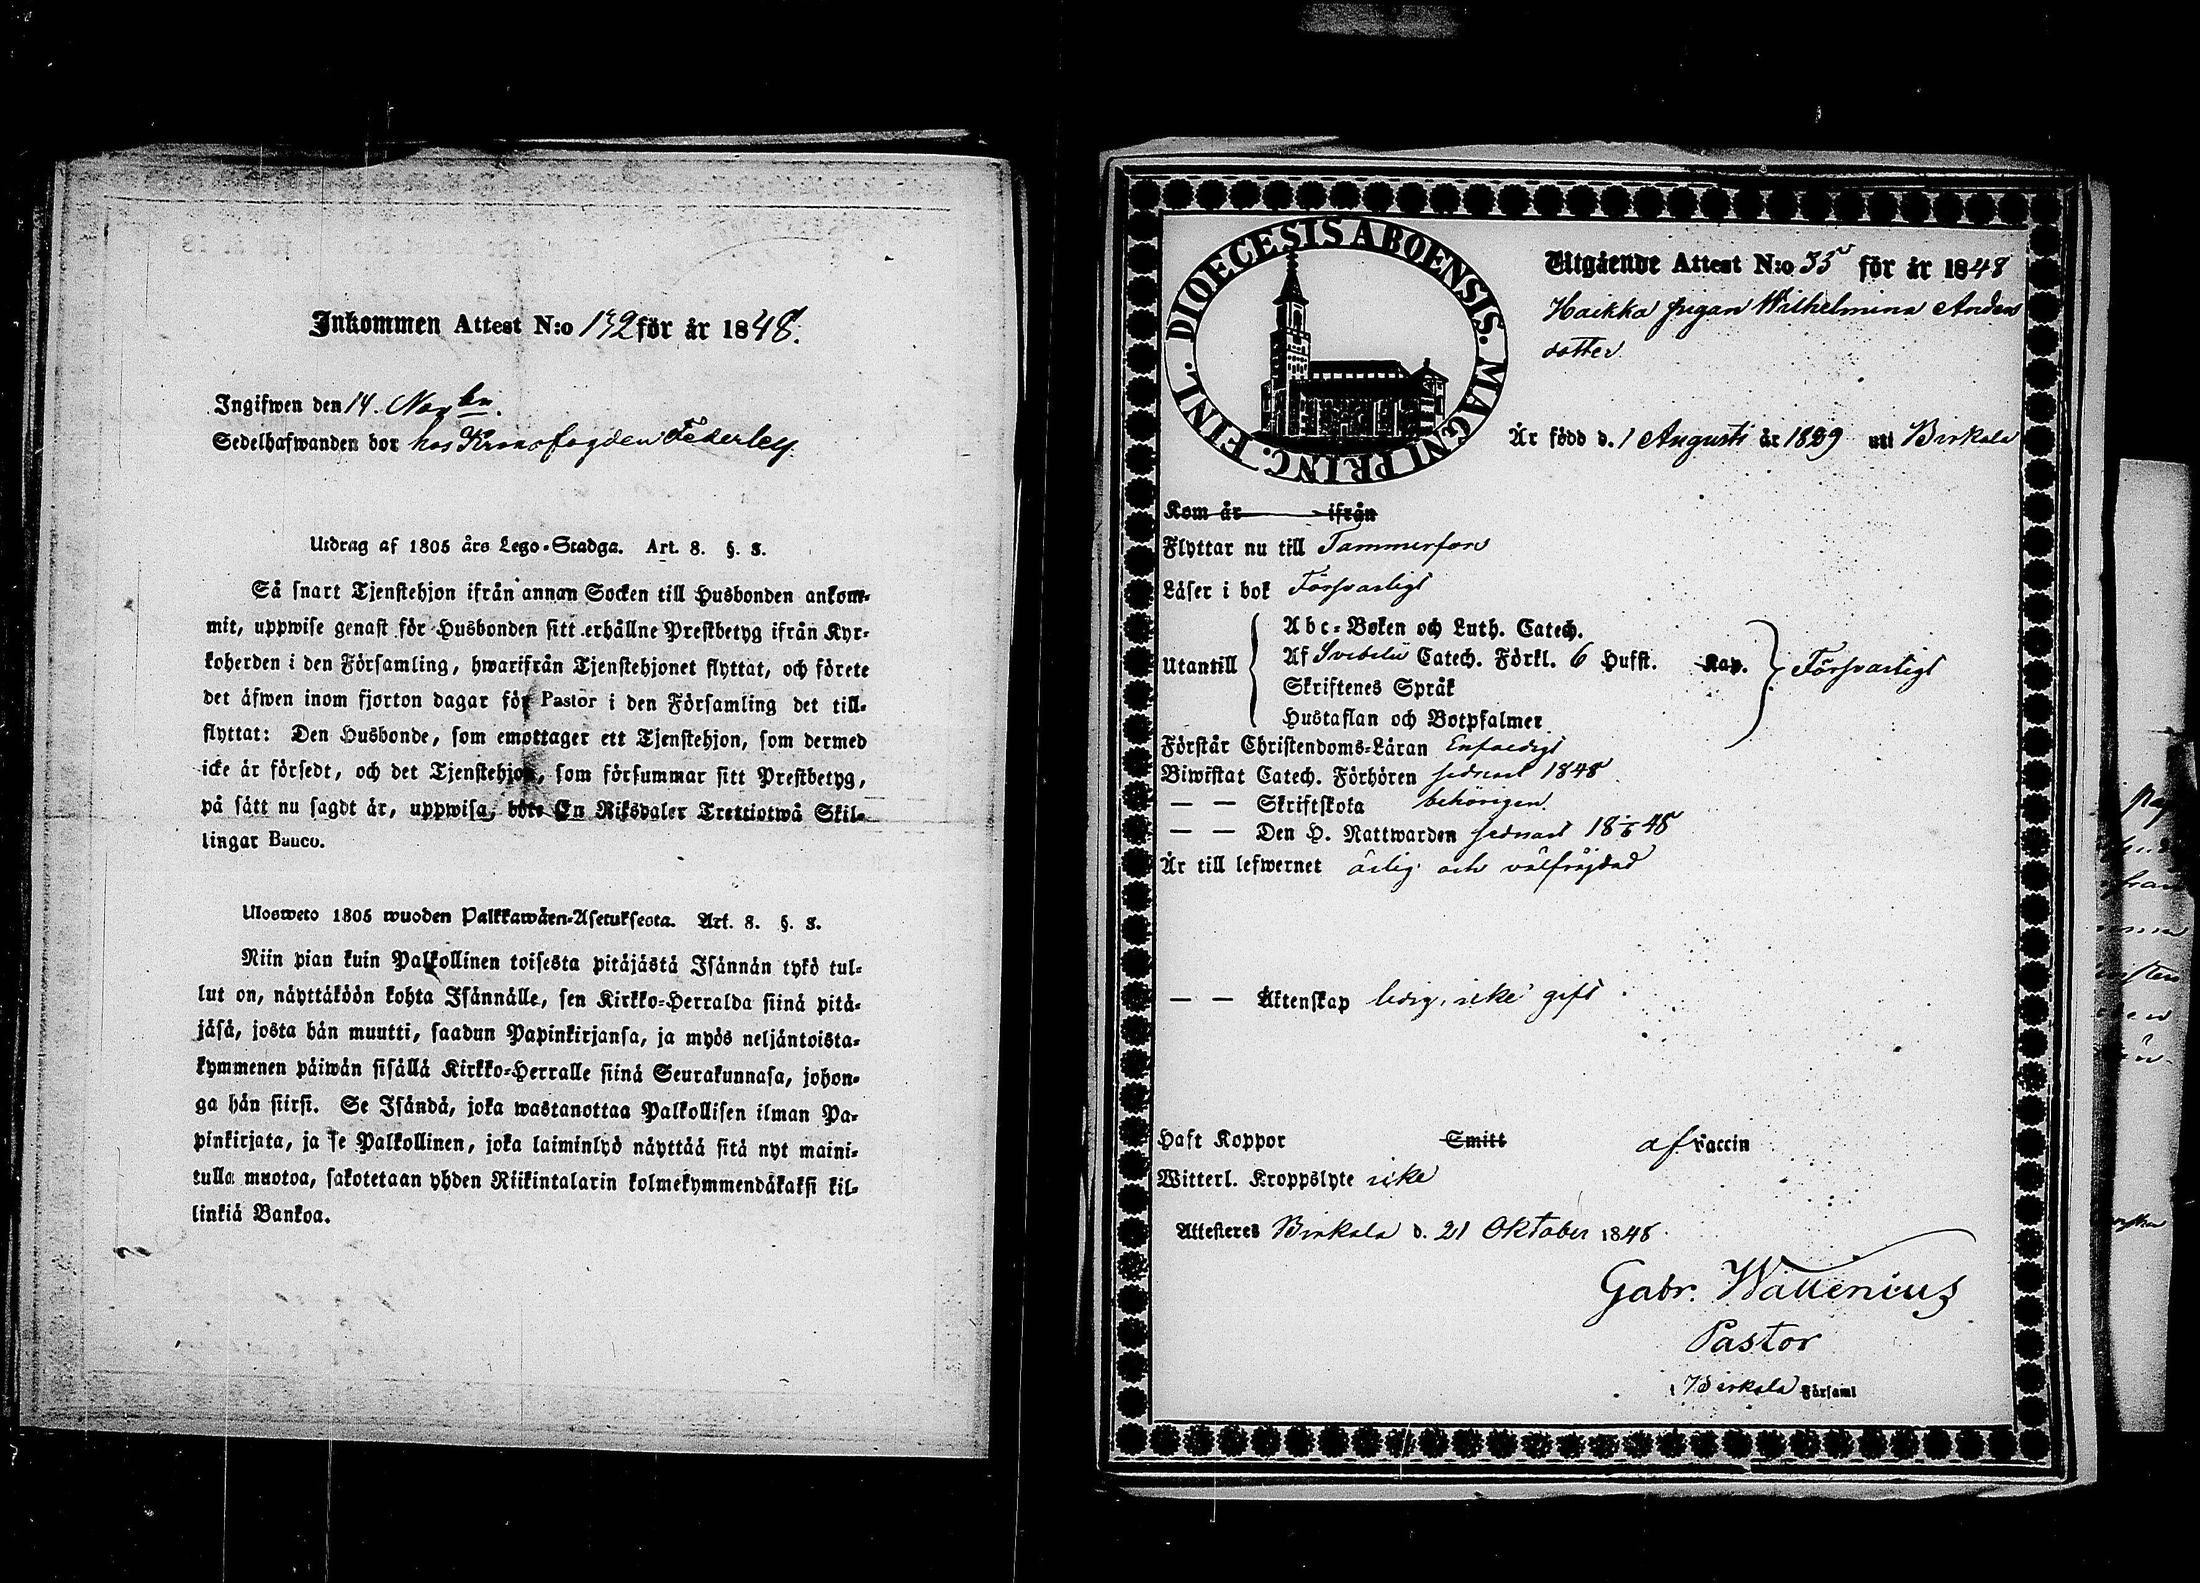 Inkommen Attest N:o 132 för år 1848.
Ingifwen den 14 Novbr.
Sedelhafwanden bor hos Kronofogden Federley.
Utdrag af 1805 års Lego-Stadga. Art. 8. §. 3.
Så snart Tjenstehjon ifrån annan Socken till Husbonden ankom-
mit, uppwise genast för Husbonden sitt erhållne Prestbetyg ifrån Kyr-
koherden i den Församling, hwarifrån Tjenstehjonet flyttat, och förete
det äfwen inom fjorton dagar för Pastor i den Församling det till-
flyttat: Den Husbonde, som emottager ett Tjenstehjon, som dermed
icke är försedt, och det Tjenstehjon, som försummar sitt Prestbetyg,
på sätt nu sagdt är, uppwisa, böte En Riksdaler Trettiotwå Skil-
lingar Banco.
Ulosweto 1805 wuoden Palkkawäen-Asetuksesta. Art. 8. §. 3.
Niin pian kuin Palkollinen toisesta pitäjästä Isännän tykö tul-
lut on, näyttäköön kohta Isännälle, sen Kirkko-Herralda siinä pitä-
jäsä, josta hän muutti, saadun Papinkirjansa, ja myös neljäntoista-
kymmenen päiwän sisällä Kirkko-Herralle siinä Seurakunnasa, johon-
ga hän siirsi. Se Isändä, joka wastanottaa Palkollisen ilman Pa-
pinkirjata, ja se Palkollinen, joka laiminlyö näyttää sitä nyt maini-
tulla muotoa, sakotetaan yhden Riikintalarin kolmekymmendäkaksi kil-
linkiä Bankoa.
DIOECESIS ABOENSIS. MAGNI PRINC. FINL.
Utgående Attest N:o 33 för år 1848
Haikka pigan Wilhelmina Anders
dotter
Är född d. 1 Augusti år 1829 uti Birkala
Kom år ifrån
Flyttar nu till Tammerfors
Läser i bok Försvarligt
Abc-Boken och Luth. Catech.
Utantill Af Svebelii Catech. Förkl. 6 Hufst. Kap. Försvarligt
Skriftenes Språk
Hustaflan och Botpsalmer
Förstår Christendoms-Läran Enfaldigt
Biwistat Catech. Förhören sednast 1848
— — Skriftskola behörigen
— — Den H. Nattwarden sednast 18 48
Är till lefwernet ärlig och välfrejdad
— — Äktenskap ledig, icke gift
Haft Koppor Smitt af Vaccin
Witterl. Kroppslyte icke
Attesteres Birkala d. 21 Oktober 1848
Gabr. Wallenius
Pastor
i Birkala Församl